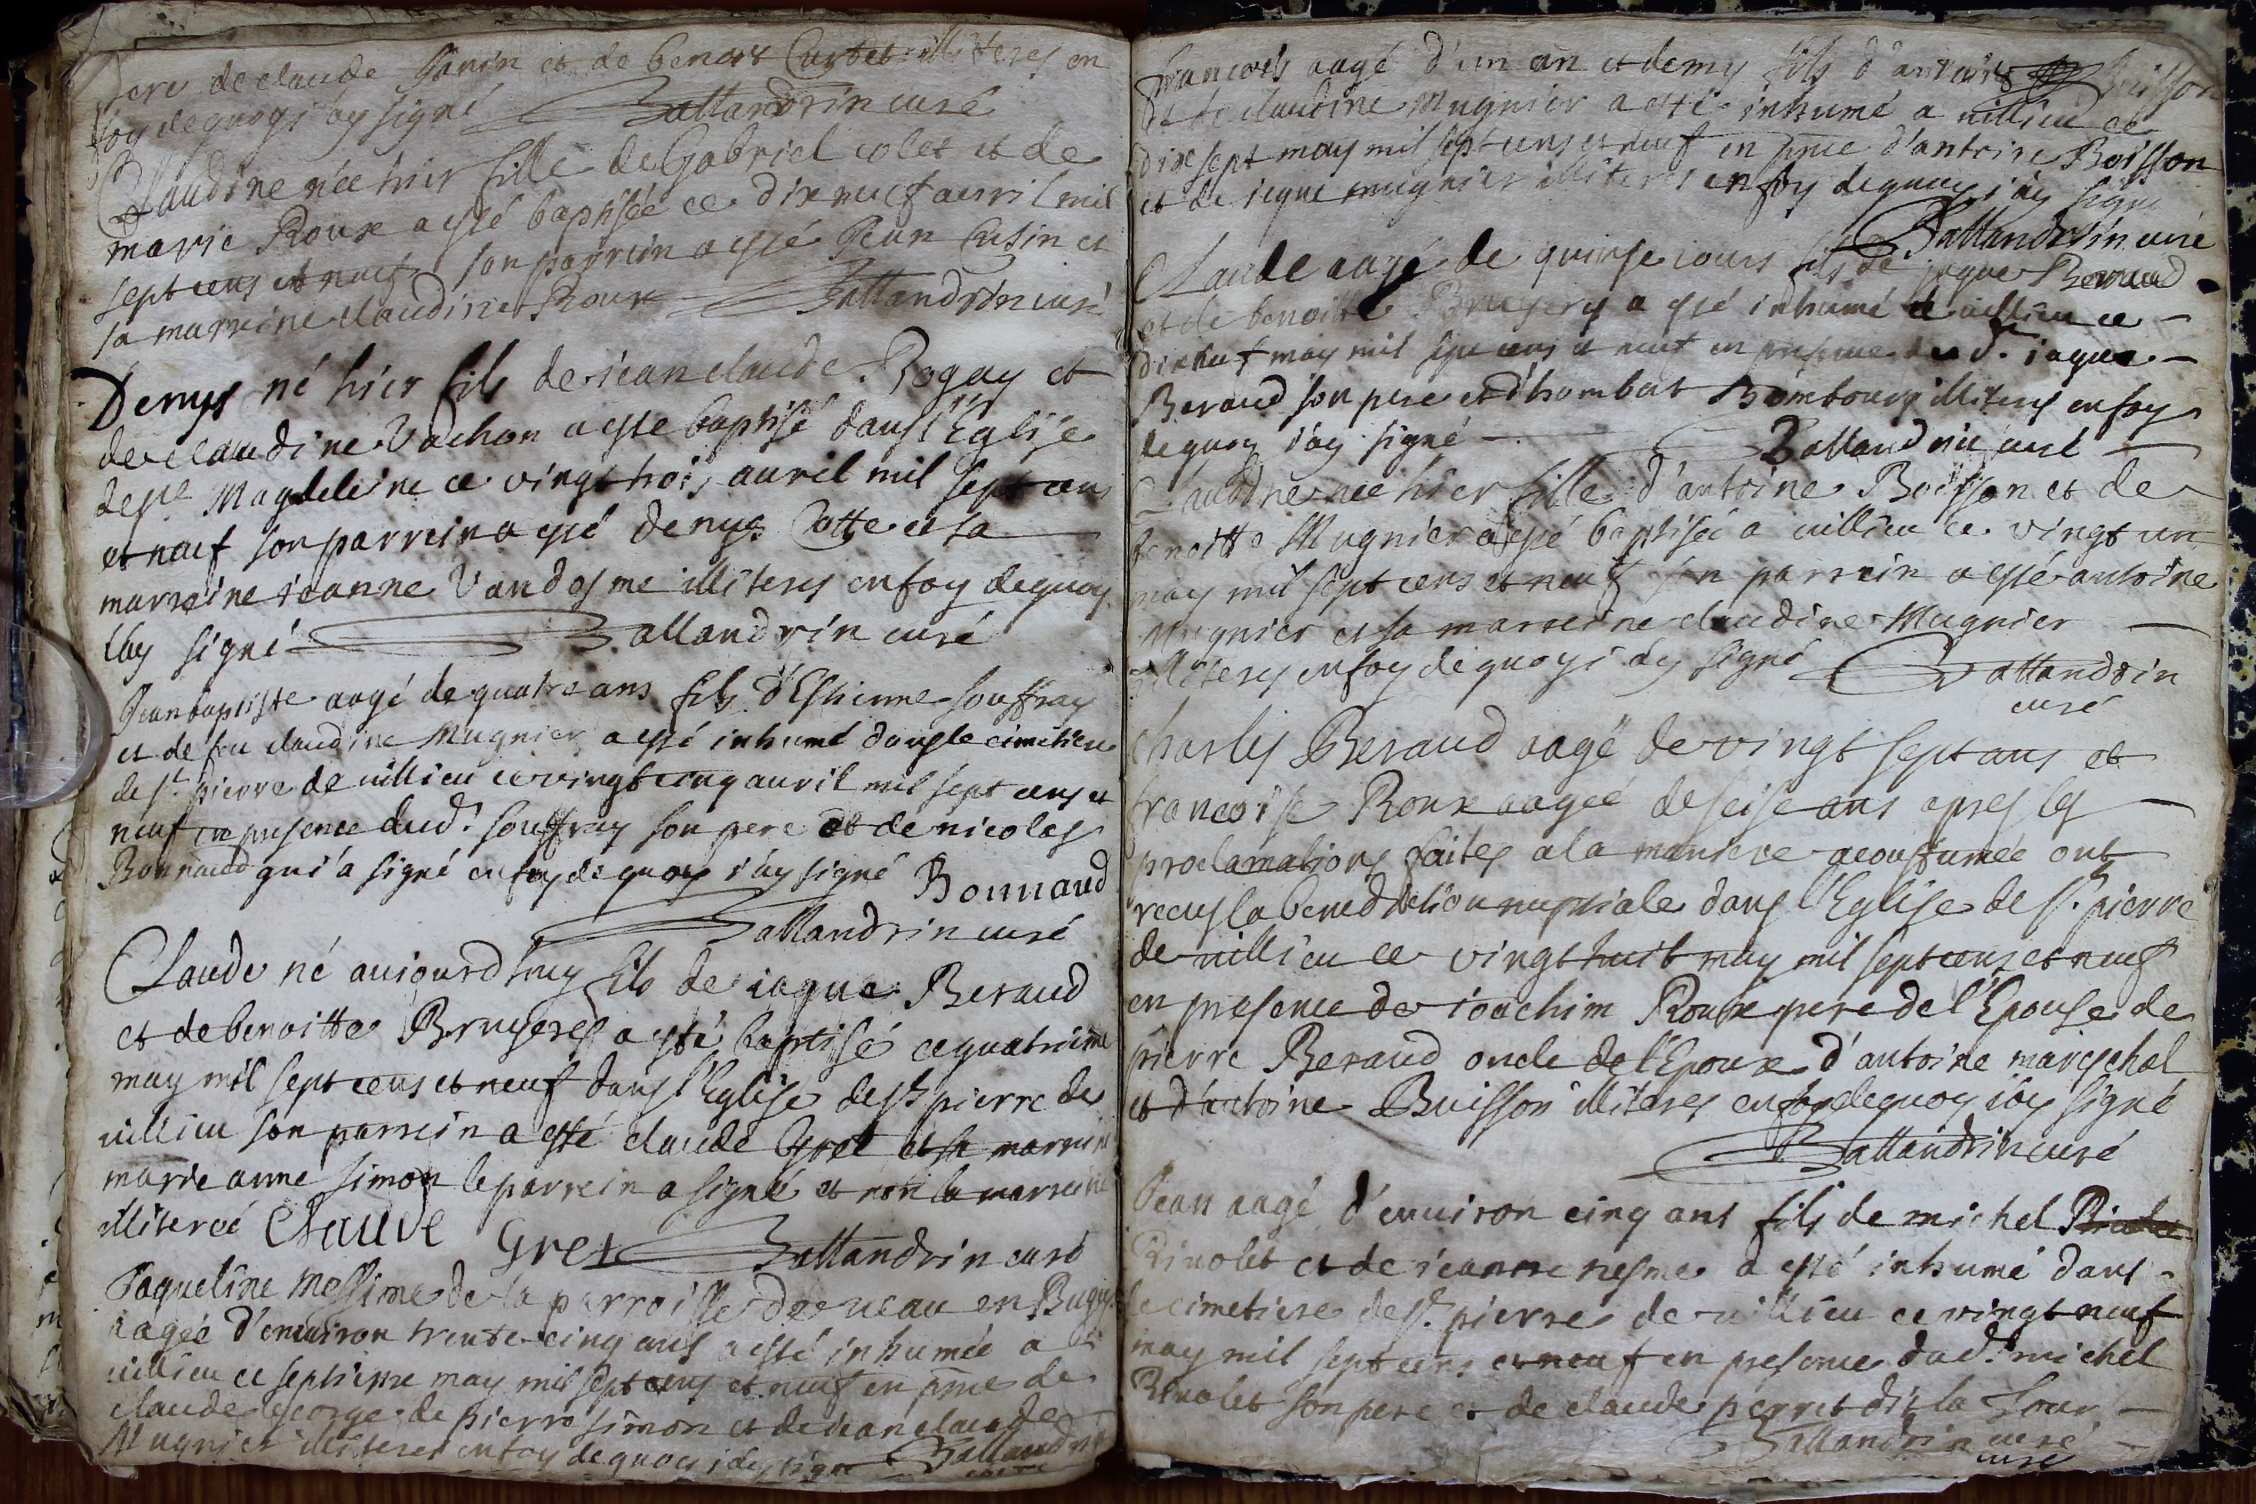 pere de claude Janin et de benoit Curtet illiteres en
foy de quoy i'ay signé Ballandrin curé
Claudine née hier fille de Gabriel colet et de
marie Roux a esté baptisée ce dix neuf auril mil
sept cens et neuf son parrein a esté Jean Cusin et
sa marreine claudine Roux Ballandrin curé
Denys né hier fils de iean claude Rogay et
de claudine Vachon a esté baptisé dans l'Eglise
de ste Magdeleine ce vingt trois auril mil sept cens
et neuf son parrein a esté denys Cotte et sa
marreine ieanne Vandosme illiteres en foy de quoy
i'ay signé Ballandrin curé
Jean baptiste aagé de quatre ans fils d'Estienne souffray
et de feu claudine Mugnier a esté inhumé dans le cimetiere
de st. pierre de uillieu ce vingt cinq auril mil sept cens et
neuf en presence dud. souffray son pere et de nicolas
Bonnaud qui a signé en foy de quoy i'ay signé Bonnaud
Ballandrin curé
Claude né auiourd'huy fils de iaque Beraud
et de benoitte Bruyeres a esté baptisé ce quatrieme
may mil sept cens et neuf dans l'Eglise de st pierre de
uillieu son parrein a esté claude Gret et sa marreine
marie anne simon le parrein a signé et non la marreine
illiterée Claude Gret Ballandrin curé
Jaqueline Messime de la parroisse de ueau en Bugey
aagée d'enuiron trente cinq ans a esté inhumée a
uillieu ce septieme may mil sept cens et neuf en pnce de
claude george de pierre simon et de iean claude
Mugnier illiteres en foy de quoy i'ay signé Ballandrin
curé
francois aagé d'un an et demy fils d'antoine Buisson
et de claudine Mugnier a esté inhumé a uillieu ce
dix sept may mil sept cens et neuf en pnce d'antoine Boisson
et de iaque mugnier illiteres en foy de quoy i'ay signé
Ballandrin curé
Claude aagé de quinse iours fils de jaque Beraud
et de benoitte Bruyeres a esté inhumé a uillieu ce
dix huit may mil sept cens et neuf en presence dud. iaque
Beraud son pere et d'hombat Bombour illiteres en foy
de quoy i'ay signé Ballandrin curé
Claudine née hier fille d'antoine Boisson et de
benoitte Mugnier a esté baptisée a uillieu ce vingt un
may mil sept cens et neuf son parrein a esté antoine
Mugnier et sa marreine claudine Mugnier
illiteres en foy de quoy i'ay signé Ballandrin
curé
Charles Beraud aagé de vingt sept ans et
francoise Roux aagée de seise ans apres les
proclamations faites a la maniere acoustumée ont
receus la benediction nuptiale dans l'Eglise de st. pierre
de uillieu ce vingt huit may mil sept cens et neuf
en presence de ioachim Roux pere de l'Epouse de
pierre Beraud oncle de l'Epoux d'antoine mareschal
et d'antoine Buisson illiteres en foy de quoy i'ay signé
Ballandrin curé
Jean aagé d'enuiron cinq ans fils de michel
Riuolet et de ieanne nesme a esté inhumé dans
le cimetiere de st. pierre de uillieu ce vingt neuf
may mil sept cens et neuf en presence dud. michel
Riuolet son pere et de claude perret dit la Tour
Ballandrin curé
curé